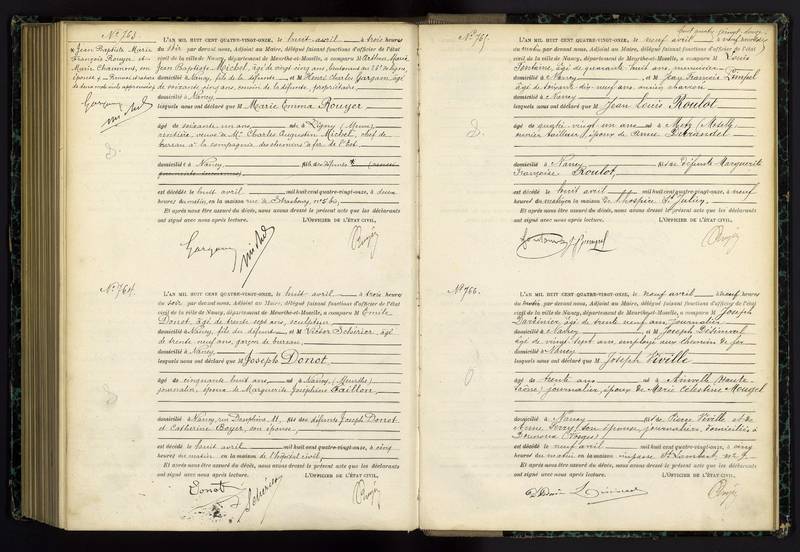 No. 763
L'AN MIL HUIT CENT QUATRE-VINGT-ONZE, le huit avril à trois heures
du soir par devant nous, Adjoint au Maire, délégué faisant fonctions d'officier de l'état
civil de la ville de Nancy, département de Meurthe-et-Moselle, a comparu M
Jean Baptiste Michel, âgé de vingt cinq ans,
domicilié à Nancy, fils de la défunte et M Henri Charles Gargam, âgé
de soixante cinq ans, cousin de la défunte, propriétaire,
domicilié à Nancy
lesquels nous ont déclaré que M Marie Emma Rouyer
âgé de soixante un ans né à Ligny (Meuse)
rentière, veuve de Mr. Charles Augustin Michel, chef de
bureau à la compagnie des chemins de fer de l'Est
domicilié à Nancy fils des défunts
est décédé le huit avril mil huit cent quatre-vingt-onze, à deux
heures du matin, en la maison rue de Strasbourg, no 560,
Et après nous être assuré du décès, nous avons dressé le présent acte que les déclarants
ont signé avec nous après lecture. L'OFFICIER DE L'ÉTAT CIVIL,
Jean Baptiste Marie
François Rouyer et
Marie Chaumont, son
épouse
Gargam
Michel
Gargam
Michel
No. 764.
L'AN MIL HUIT CENT QUATRE-VINGT-ONZE, le huit avril à trois heures
du soir par devant nous, Adjoint au Maire, délégué faisant fonctions d'officier de l'état
civil de la ville de Nancy, département de Meurthe-et-Moselle, a comparu M Emile
Donot, âgé de trente sept ans, sculpteur
domicilié à Nancy, fils du défunt et M Victor Schérier, âgé
de trente neuf ans, garçon de bureau,
domicilié à Nancy
lesquels nous ont déclaré que M Joseph Donot,
âgé de cinquante huit ans né à Nancy (Meurthe)
journalier, époux de Marguerite Joséphine Taillon
domicilié à Nancy, rue Dauphine, 11, fils des défunts Joseph Donot
et Catherine Boyer, son épouse,
est décédé le huit avril mil huit cent quatre-vingt-onze, à cinq
heures du matin en la maison de l'hôpital civil,
Et après nous être assuré du décès, nous avons dressé le présent acte que les déclarants
ont signé avec nous après lecture. L'OFFICIER DE L'ÉTAT CIVIL,
Donot
Schérier
No. 765.
L'AN MIL HUIT CENT QUATRE-VINGT-ONZE, le neuf avril à neuf heures
du matin par devant nous, Adjoint au Maire, délégué faisant fonctions d'officier de l'état
civil de la ville de Nancy, département de Meurthe-et-Moselle, a comparu M Louis
Fontaine, âgé de quarante huit ans, menuisier
domicilié à Nancy et M Jean François
âgé de soixante dix neuf ans, ancien charron
domicilié à Nancy
lesquels nous ont déclaré que M Jean Louis Roulot
âgé de quatre vingt un ans né à Metz (Moselle)
ancien tailleur, époux de Anne
domicilié à Nancy fils de défunte Marguerite
Françoise Roulot,
est décédé le huit avril mil huit cent quatre-vingt-onze, à neuf
heures du en la maison de l'hospice St. Julien,
Et après nous être assuré du décès, nous avons dressé le présent acte que les déclarants
ont signé avec nous après lecture. L'OFFICIER DE L'ÉTAT CIVIL,
No. 766.
L'AN MIL HUIT CENT QUATRE-VINGT-ONZE, le neuf avril à neuf heures
du matin par devant nous, Adjoint au Maire, délégué faisant fonctions d'officier de l'état
civil de la ville de Nancy, département de Meurthe-et-Moselle, a comparu M Joseph
âgé de trente neuf ans, journalier
domicilié à Nancy et M Joseph
âgé de vingt sept ans, employé aux chemins de fer
domicilié à Nancy
lesquels nous ont déclaré que M Joseph Viville
âgé de trente ans né à Ainvelle (Haute
Saône) journalier, époux de Marie Célestine Mougel
domicilié à Nancy fils de Pierre Viville et de
Anne son épouse, journaliers, domiciliés à
(Vosges)
est décédé le neuf avril mil huit cent quatre-vingt-onze, à cinq
heures du matin en la maison impasse St. Lambert, no 9.
Et après nous être assuré du décès, nous avons dressé le présent acte que les déclarants
ont signé avec nous après lecture. L'OFFICIER DE L'ÉTAT CIVIL,